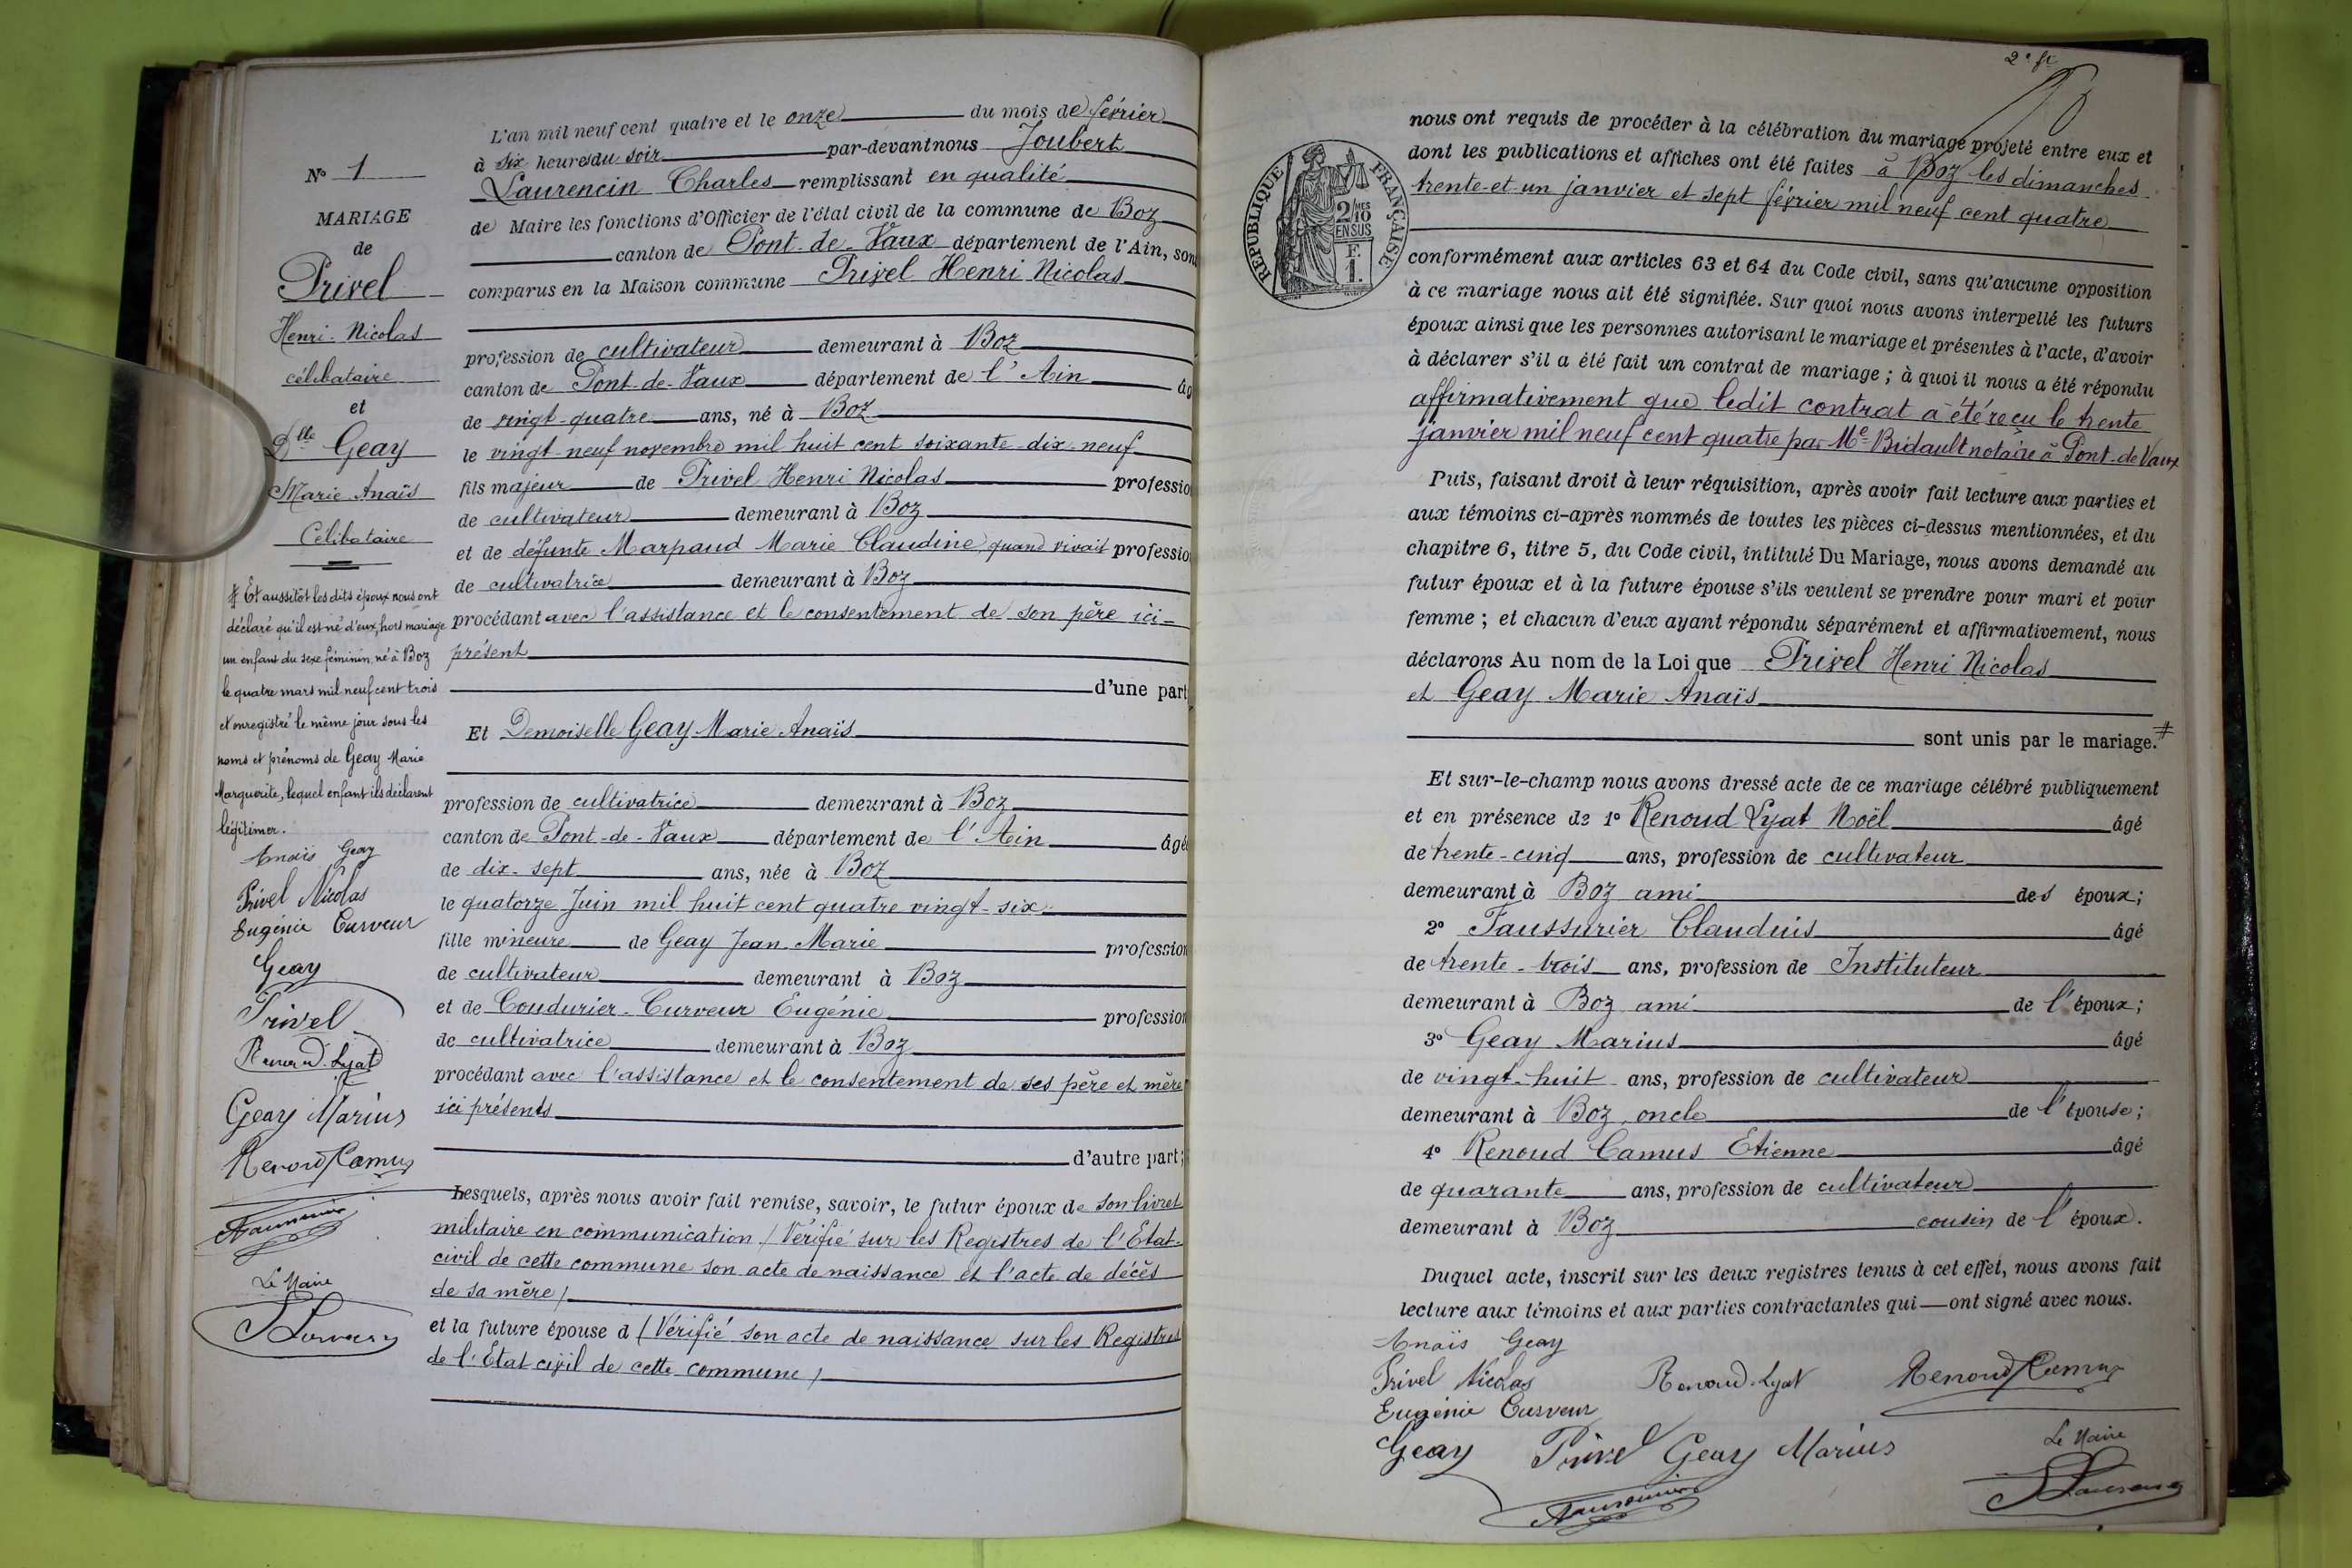 N° 1
MARIAGE
de
Privel
Henri-Nicolas
célibataire
et
Dlle Geay
Marie Anaïs
Célibataire
# Et aussitôt les dits époux nous ont
déclaré qu'il est né d'eux, hors mariage
un enfant du sexe féminin, né à Boz
le quatre mars mil neuf cent trois
et enregistré le même jour sous les
noms et prénoms de Geay Marie
Marguerite, lequel enfant ils déclarent
légitimer.
Anaïs Geay
Privel Nicolas
Eugénie Curveur
Geay
Privel
Renoud-Lyat
Geay Marius
Renoud Camus
Le Maire
L'an mil neuf cent quatre et le onze du mois de février
à six heures du soir par-devant nous Joubert
Laurencin Charles remplissant en qualité
de Maire les fonctions d'Officier de l'état civil de la commune de Boz
canton de Pont-de-Vaux département de l'Ain, son
comparus en la Maison commune Privel Henri Nicolas
profession de cultivateur demeurant à Boz
canton de Pont-de-Vaux département de l'Ain âg
de vingt-quatre ans, né à Boz
le vingt-neuf novembre mil huit cent soixante-dix-neuf
fils majeur de Privel Henri Nicolas professio
de cultivateur demeurant à Boz
et de défunte Marpaud Marie Claudine, quand vivait professio
de cultivatrice demeurant à Boz
procédant avec l'assistance et le consentement de son père ici-
présent
d'une part
Et Demoiselle Geay Marie Anaïs
profession de cultivatrice demeurant à Boz
canton de Pont-de-Vaux département de l'Ain âgé
de dix-sept ans, née à Boz
le quatorze Juin mil huit cent quatre vingt-six
fille mineure de Geay Jean Marie profession
de cultivateur demeurant à Boz
et de Coudurier-Curveur Eugénie profession
de cultivatrice demeurant à Boz
procédant avec l'assistance et le consentement de ses père et mère
ici présents
d'autre part;
Lesquels, après nous avoir fait remise, savoir, le futur époux de son livret
militaire en communication / Vérifié sur les Registres de l'Etat-
civil de cette commune son acte de naissance et l'acte de décès
de sa mère /
et la future épouse d (Vérifié son acte de naissance sur les Registres
de l'Etat civil de cette commune /
2e ft
nous ont requis de procéder à la célébration du mariage projeté entre eux et
dont les publications et affiches ont été faites à Boz les dimanches
trente-et un janvier et sept février mil neuf cent quatre
RÉPUBLIQUE FRANÇAISE
2/10 MES
EN SUS
F.
1.
conformément aux articles 63 et 64 du Code civil, sans qu'aucune opposition
à ce mariage nous ait été signifiée. Sur quoi nous avons interpellé les futurs
époux ainsi que les personnes autorisant le mariage et présentes à l'acte, d'avoir
à déclarer s'il a été fait un contrat de mariage ; à quoi il nous a été répondu
affirmativement que ledit contrat a été reçu le trente
janvier mil neuf cent quatre par Me Bridault notaire à Pont-de Vaux
Puis, faisant droit à leur réquisition, après avoir fait lecture aux parties et
aux témoins ci-après nommés de toutes les pièces ci-dessus mentionnées, et du
chapitre 6, titre 5, du Code civil, intitulé Du Mariage, nous avons demandé au
futur époux et à la future épouse s'ils veulent se prendre pour mari et pour
femme ; et chacun d'eux ayant répondu séparément et affirmativement, nous
déclarons Au nom de la Loi que Privel Henri Nicolas
et Geay Marie Anaïs
sont unis par le mariage. #
Et sur-le-champ nous avons dressé acte de ce mariage célébré publiquement
et en présence de 1° Renoud Lyat Noël âgé
de trente-cinq ans, profession de cultivateur
demeurant à Boz ami des époux;
2° Faussurier Claudius âgé
de trente-trois ans, profession de Instituteur
demeurant à Boz ami de l'époux;
3° Geay Marius âgé
de vingt-huit ans, profession de cultivateur
demeurant à Boz, oncle de l'épouse;
4° Renoud Camus Etienne âgé
de quarante ans, profession de cultivateur
demeurant à Boz cousin de l'époux.
Duquel acte, inscrit sur les deux registres tenus à cet effet, nous avons fait
lecture aux témoins et aux parties contractantes qui ont signé avec nous.
Anaïs Geay
Privel Nicolas Renoud-Lyat Renoud Camus
Eugénie Curveur
Geay Privel Geay Marius
Le Maire